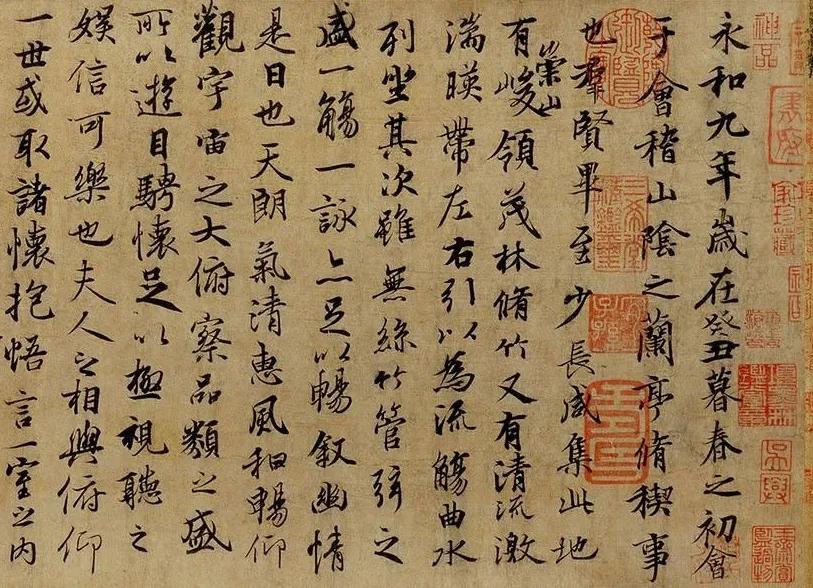 神品
永和九年歲在癸丑暮春之初會
于會稽山陰之蘭亭脩稧事
也羣賢畢至少長咸集此地
有崇山峻領茂林脩竹又有清流激
湍暎帶左右引以為流觴曲水
列坐其次雖無絲竹管弦之
盛一觴一詠亦足以暢敘幽情
是日也天朗氣清惠風和暢仰
觀宇宙之大俯察品類之盛
所以遊目騁懷足以極視聽之
娛信可樂也夫人之相與俯仰
一世或取諸懷抱悟言一室之內